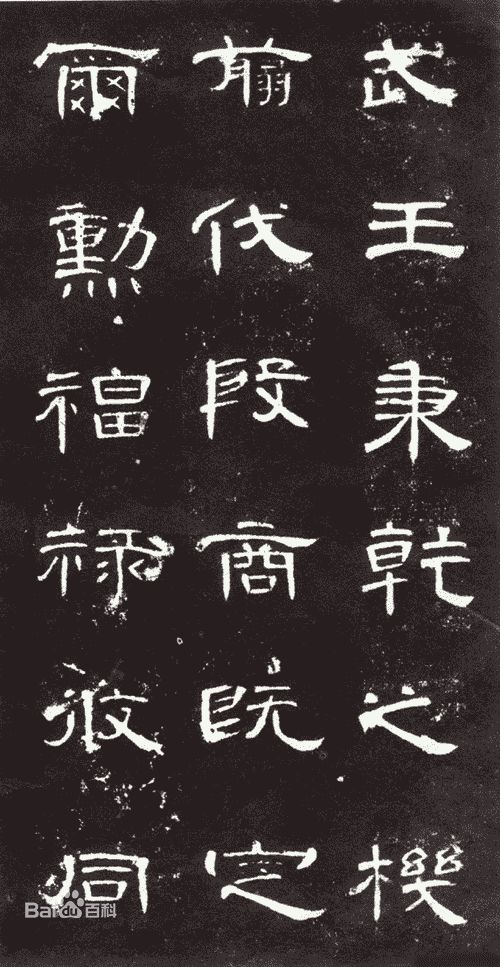 武王秉乾之機
翦伐殷商既定
爾勳福祿攸同
Baidu百科